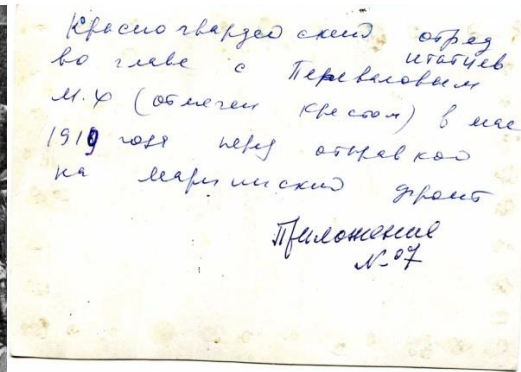 Красногвардейский отряд
итатцев
во главе с Переваловым
М.Х (отмечен крестом) в мае
1919 года перед отправкой
на Мариинский фронт
Приложение
№ 07